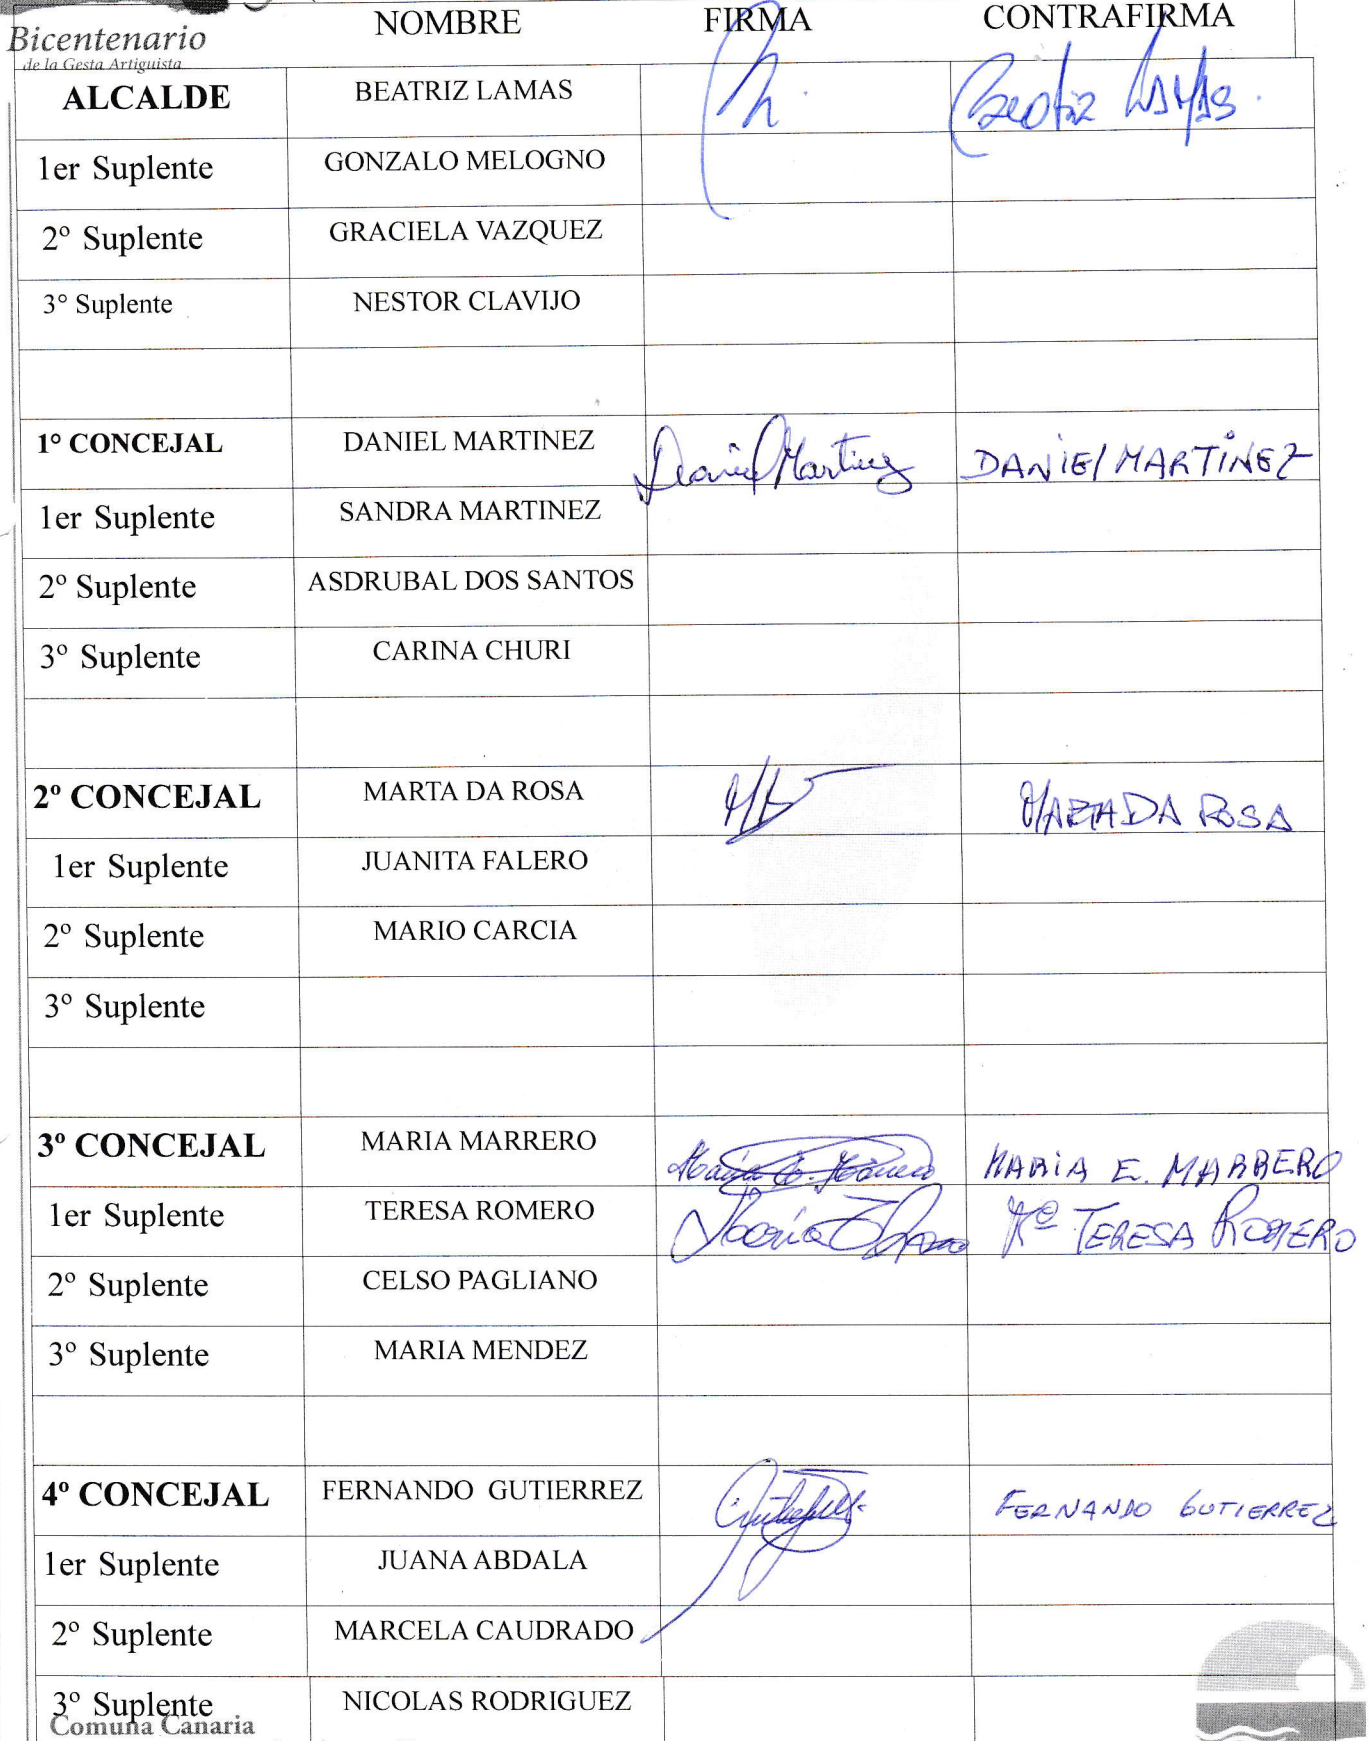 NOMBRE FIRMA CONTRAFIRMA
Bicentenario
de la Gesta Artiguista
ALCALDE BEATRIZ LAMAS Beatriz LAMAS
1er Suplente GONZALO MELOGNO
2º Suplente GRACIELA VAZQUEZ
3° Suplente NESTOR CLAVIJO
1º CONCEJAL DANIEL MARTINEZ Daniel Martinez DANIEL MARTÍNEZ
1er Suplente SANDRA MARTINEZ
2º Suplente ASDRUBAL DOS SANTOS
3º Suplente CARINA CHURI
2º CONCEJAL MARTA DA ROSA MARTA DA ROSA
1er Suplente JUANITA FALERO
2º Suplente MARIO CARCIA
3º Suplente
3º CONCEJAL MARIA MARRERO Maria E. Marrero MARIA E. MARRERO
1er Suplente TERESA ROMERO Mª TERESA ROMERO
2º Suplente CELSO PAGLIANO
3º Suplente MARIA MENDEZ
4º CONCEJAL FERNANDO GUTIERREZ FERNANDO GUTIERREZ
1er Suplente JUANA ABDALA
2º Suplente MARCELA CAUDRADO
3º Suplente NICOLAS RODRIGUEZ
Comuna Canaria